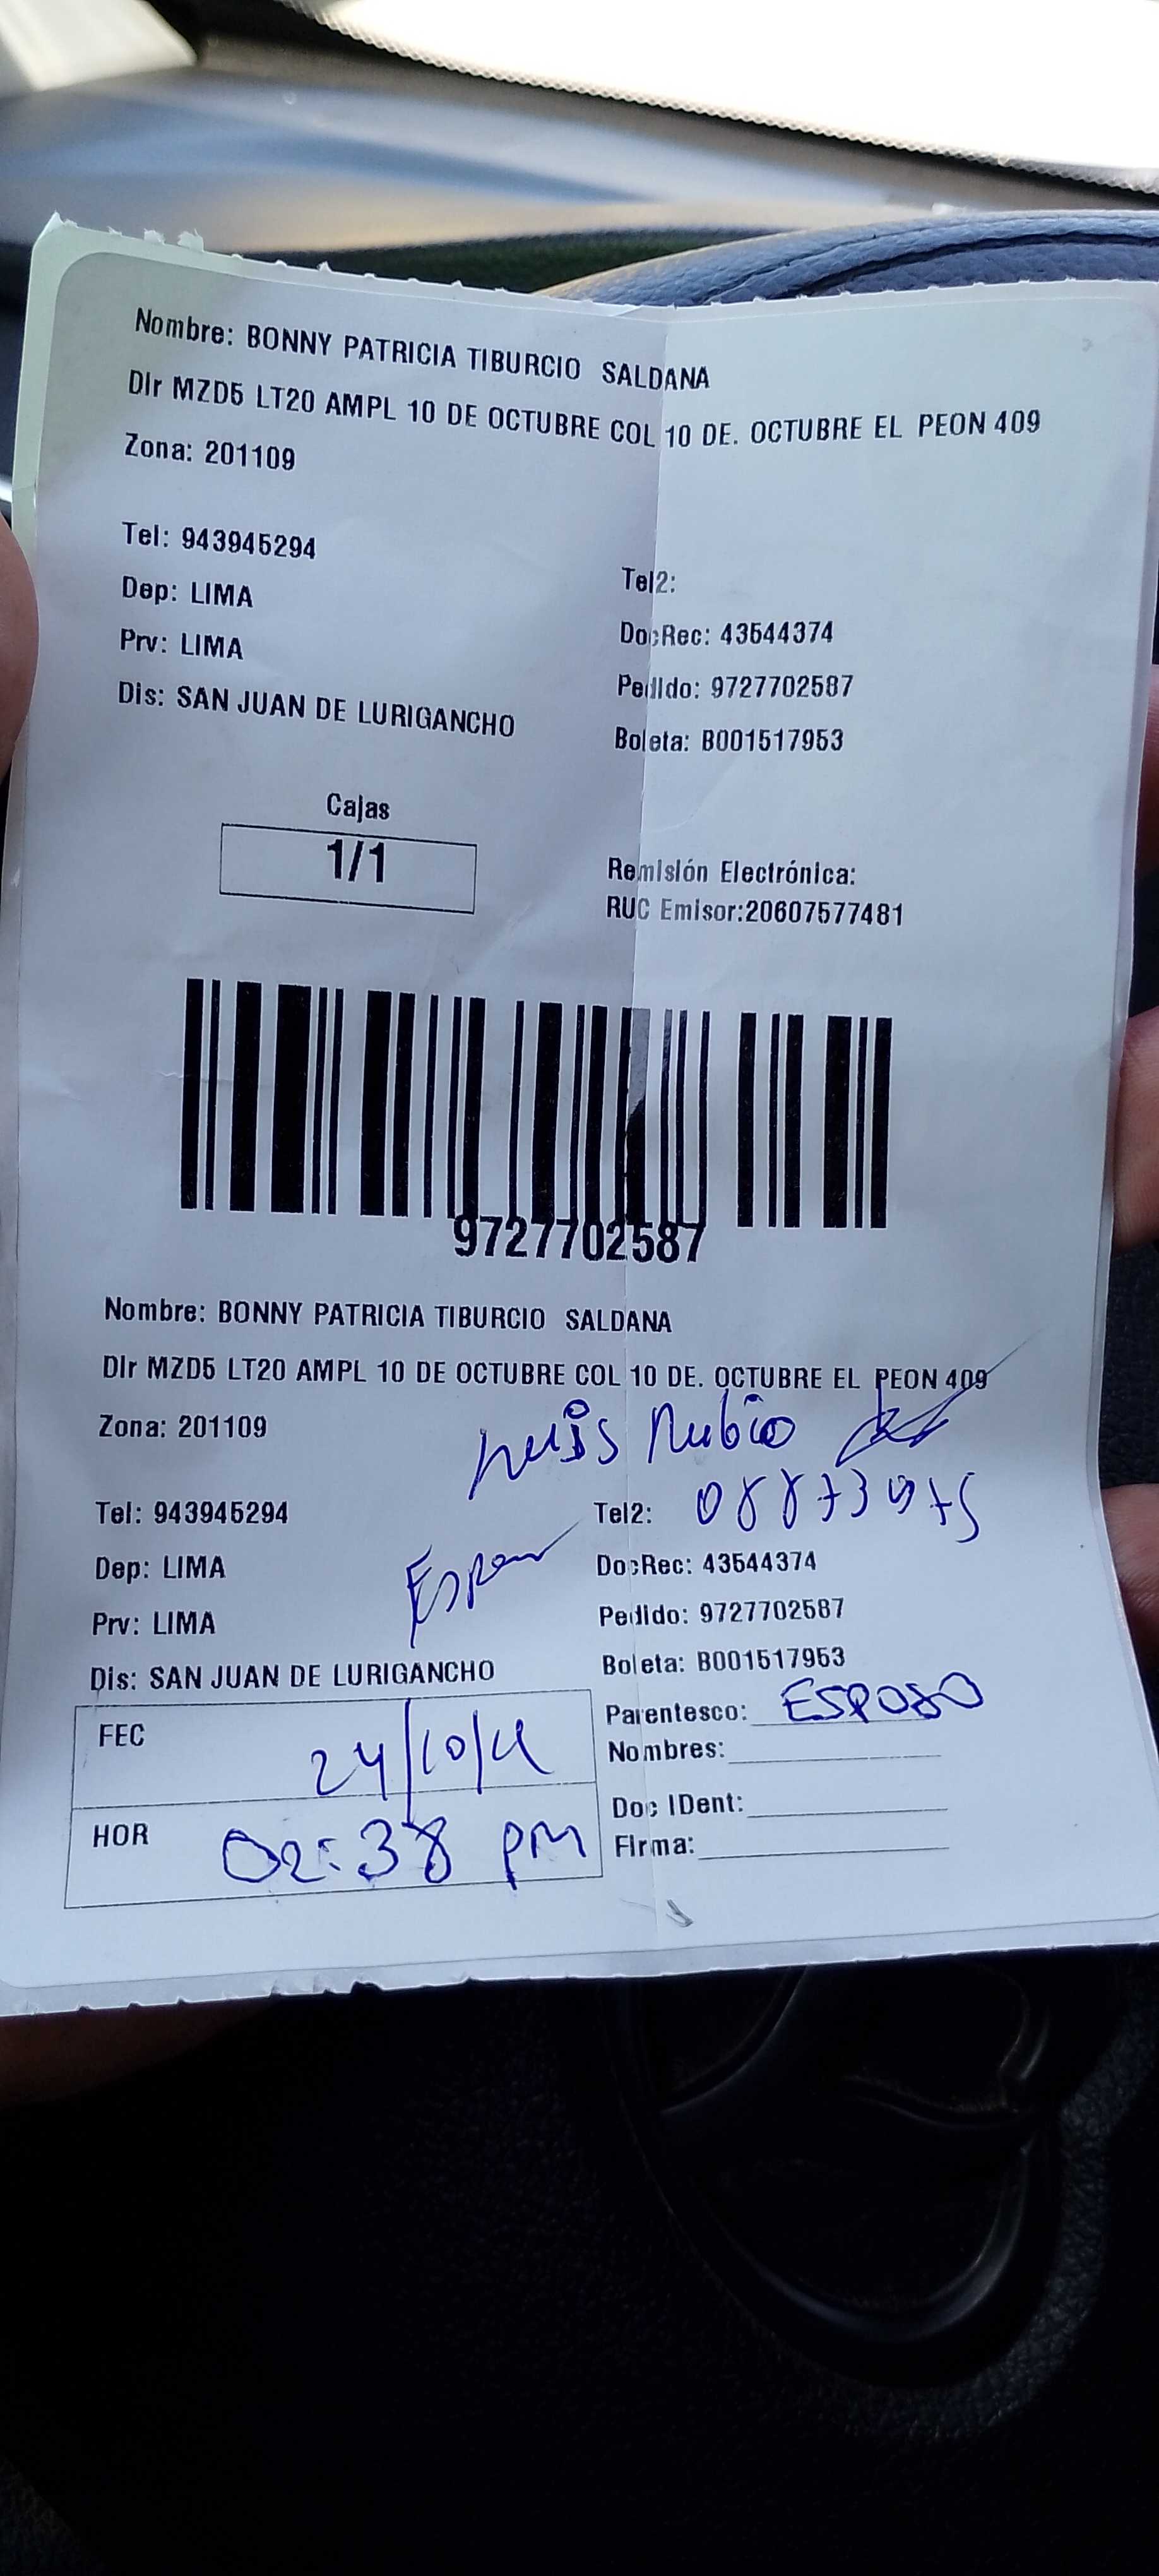 Nombre: BONNY PATRICIA TIBURCIO SALDANA
Dir MZD5 LT20 AMPL 10 DE OCTUBRE COL 10 DE. OCTUBRE EL PEON 409
Zona: 201109
Tel: 943945294
Tel2:
Dep: LIMA
DocRec: 43544374
Prv: LIMA
Pedido: 9727702587
Dis: SAN JUAN DE LURIGANCHO
Boleta: B001517953
Cajas
1/1
Remisión Electrónica:
RUC Emisor:20607577481
9727702587
Nombre: BONNY PATRICIA TIBURCIO SALDANA
Dir MZD5 LT20 AMPL 10 DE OCTUBRE COL 10 DE. OCTUBRE EL PEON 409
Zona: 201109
Luis Rubio
Tel: 943945294
Tel2:
Dep: LIMA
DocRec: 43544374
Prv: LIMA
Pedido: 9727702587
Dis: SAN JUAN DE LURIGANCHO
Boleta: B001517953
Parentesco: ESPOSO
FEC
Nombres:
Doc IDent:
HOR 02:38 PM
Firma: